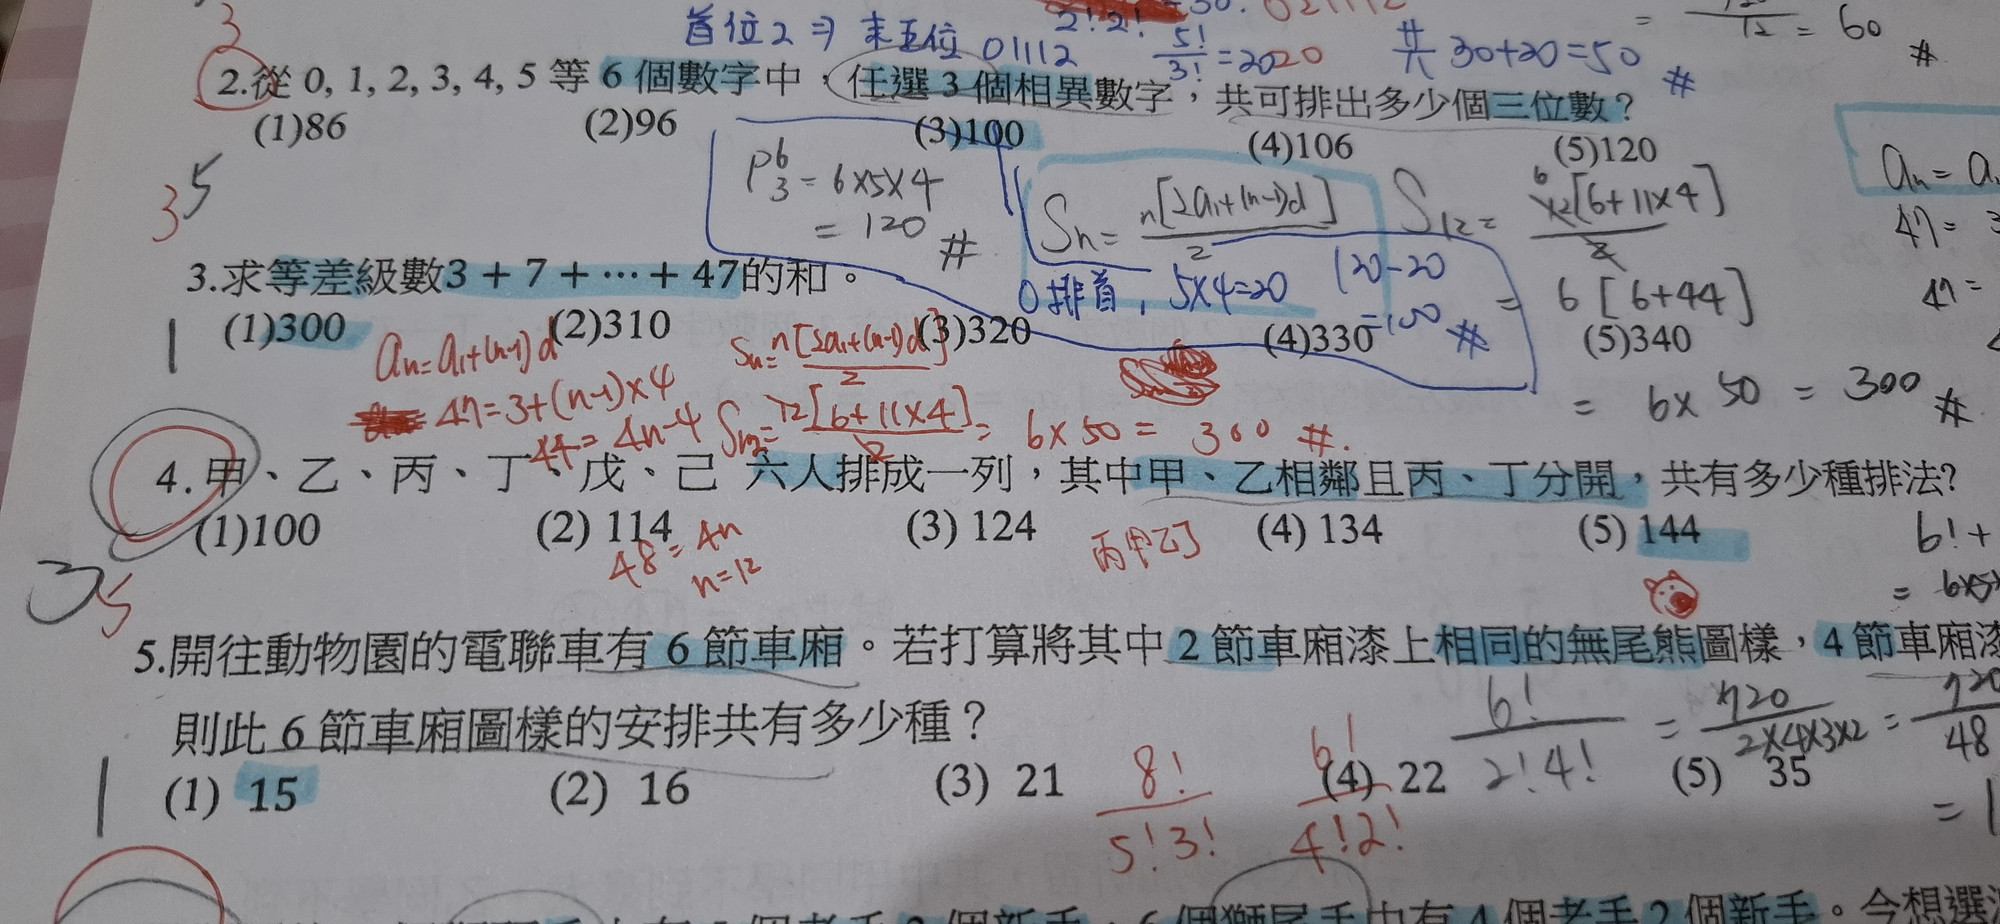 首位2⇒末五位 01112
5!/3! = 20 20
共 30+20=50 #
= 60 #
3
2.從 0, 1, 2, 3, 4, 5 等 6 個數字中,任選 3 個相異數字,共可排出多少個三位數?
(1)86 (2)96 (3)100 (4)106 (5)120
35
P⁶₃ = 6×5×4
= 120 #
Sn = n[2a₁+(n-1)d]/2
S₁₂ = 12[6+11×4]/2
= 6[6+44]
= 6×50 = 300 #
0排首, 5×4=20
120-20
=100 #
3.求等差級數3 + 7 + ⋯ + 47的和。
(1)300 (2)310 (3)320 (4)330 (5)340
1
an=a₁+(n-1)d
47=3+(n-1)×4
44=4n-4
48=4n
n=12
Sn=n[2a₁+(n-1)d]/2
S₁₂=12[6+11×4]/2 = 6×50 = 300 #.
4.甲、乙、丙、丁、戊、己 六人排成一列,其中甲、乙相鄰且丙、丁分開,共有多少種排法?
(1)100 (2) 114 (3) 124 (4) 134 (5) 144
丙甲乙丁
35
5.開往動物園的電聯車有 6 節車廂。若打算將其中 2 節車廂漆上相同的無尾熊圖樣,4 節車廂漆
則此 6 節車廂圖樣的安排共有多少種?
(1) 15 (2) 16 (3) 21 (4) 22 (5) 35
1
8!/5!3!
6!/4!2!
6!/2!4! = 720/2×4×3×2 = 720/48